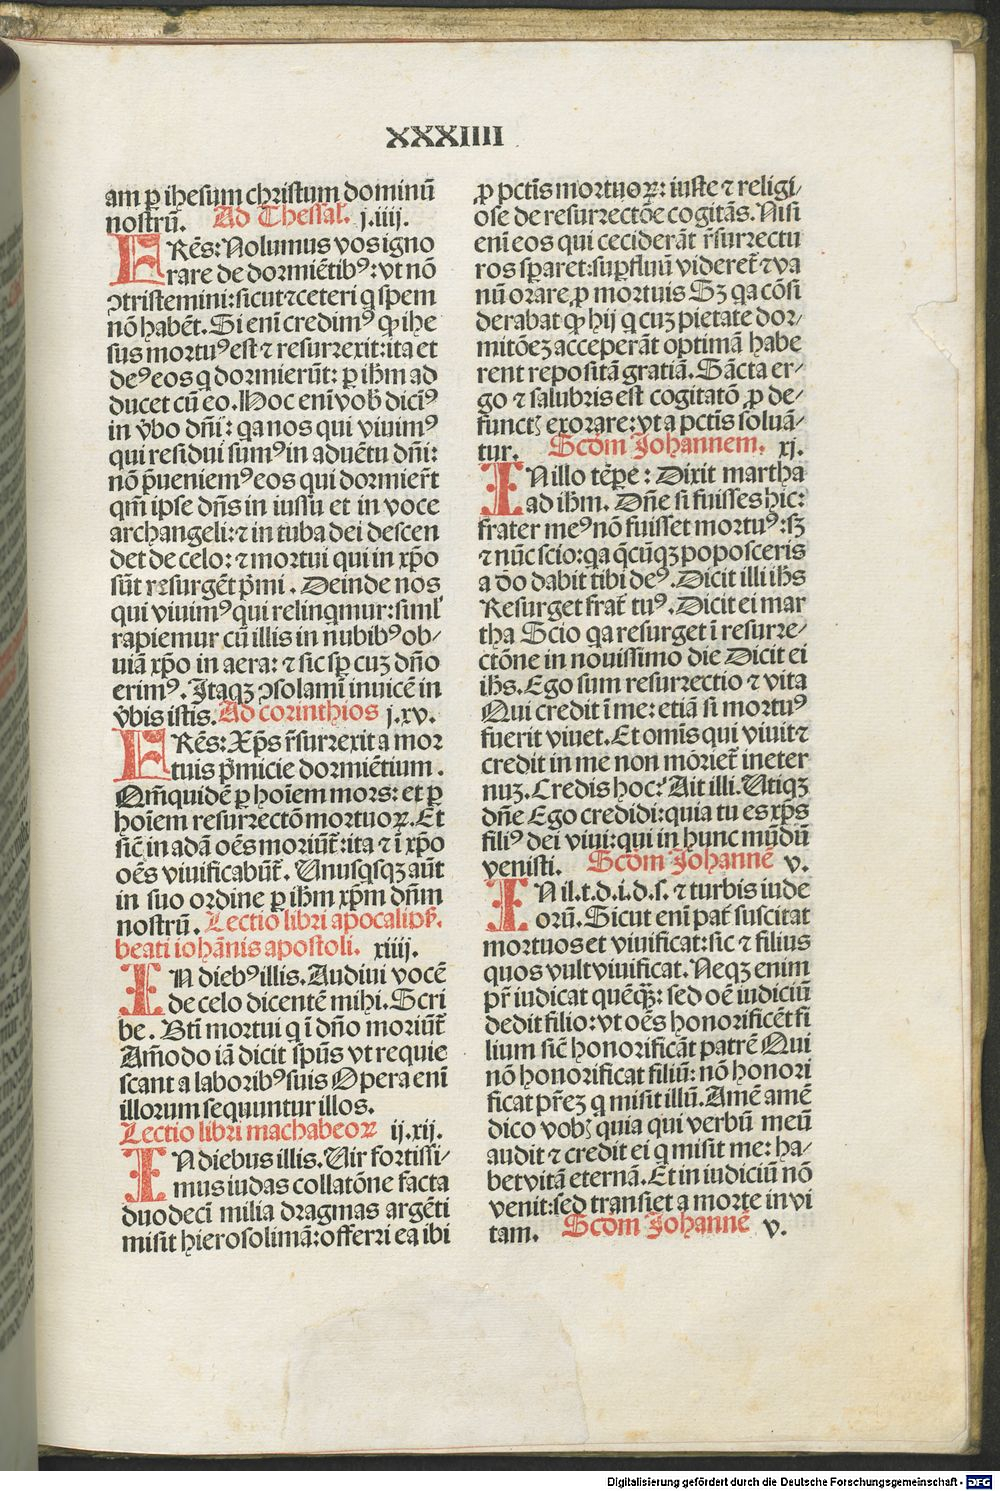 XXXIIII
am ꝑ ihesum christum dominū
nostrū. Ad Thessal̄. j.iiij.
FRēs: Nolumus vos igno
rare de dormiētibꝰ: vt nō
ↄtristemini: sicut ⁊ ceteri q̄ spem
nō habēt. Si enī credimꝰ ꝙ ihe
sus mortuꝰ est ⁊ resurrexit: ita et
deꝰ eos q̄ dormierūt: ꝑ ihm̄ ad
ducet cū eo. Hoc enī vob̄ dicimꝰ
in v̄bo dn̄i: qa nos qui viuimꝰ
qui residui sumꝰ in aduētu dn̄i:
nō p̄ueniemꝰ eos qui dormier̄t
qm̄ ipse dn̄s in iussu et in voce
archangeli: ⁊ in tuba dei descen
det de celo: ⁊ mortui qui in xp̄o
sūt resurgēt p̄mi. Deinde nos
qui viuimꝰ qui relinqmur: siml̄
rapiemur cū illis in nubibꝰ ob⸗
uiā xp̄o in aera: ⁊ sic sp̄ cuꝫ dn̄o
erimꝰ. Itaqꝫ ↄsolamī inuicē in
v̄bis istis. Ad corinthios j.xv.
FRēs: Xp̄s r̄surrexit a mor
tuis p̄micie dormiētium.
Qm̄ quidē ꝑ hoīem mors: et ꝑ
hoīem resurrectō mortuoꝝ. Et
sic̄ in adā oēs moriūt̄: ita ⁊ ī xp̄o
oēs viuificabūt̄. Unusqsqꝫ aūt
in suo ordine ꝑ ihm̄ xp̄m dn̄m
nostrū. Lectio libri apocalip̄s.
beati iohānis apostoli. xiiij.
IN diebꝰ illis. Audiui vocē
de celo dicentē mihi. Scri
be. Bt̄i mortui q̄ ī dn̄o moriūt̄
Am̄odo iā dicit sp̄us vt requie
scant a laboribꝰ suis Opera enī
illorum sequuntur illos.
Lectio libri machabeoꝝ ij.xij.
IN diebus illis. Uir fortissi⸗
mus iudas collatōne facta
duodecī milia dragmas argēti
misit hierosolimā: offerri ea ibi
ꝓ pctīs mortuoꝝ: iuste ⁊ religi⸗
ose de resurrectōe cogitās. Nisi
enī eos qui ceciderāt r̄surrectu
ros sꝑaret: suꝑfluū videret̄ ⁊ va
nū orare ꝓ mortuis Sꝫ qa cōsi
derabat ꝙ hij q̄ cuꝫ pietate dor⸗
mitōeꝫ acceperāt optimā habe
rent repositā gratiā. Sācta er⸗
go ⁊ salubris est cogitatō ꝓ de⸗
functꝭ exorare: vt a pctīs soluā⸗
tur. Scdm̄ Johannem. xj.
IN illo tēpe: Dixit martha
ad ihm̄. Dn̄e si fuisses hic:
frater meꝰ nō fuisset mortuꝰ: sꝫ
⁊ nūc scio: qa q̄cūqꝫ poposceris
a deo dabit tibi deꝰ. Dicit illi ih̄s
Resurget frat̄ tuꝰ. Dicit ei mar
tha Scio qa resurget ī resurre⸗
ctōne in nouissimo die Dicit ei
ih̄s. Ego sum resurrectio ⁊ vita
Qui credit ī me: etiā si mortuꝰ
fuerit viuet. Et omīs qui viuit ⁊
credit in me non mōriet̄ in eter
nuꝫ. Credis hoc? Ait illi. Utiqꝫ
dn̄e Ego credidi: quia tu es xp̄s
filiꝰ dei viui: qui in hunc mūdū
venisti. Scdm̄ Johannē v.
IN il.t.d.i.d.s. ⁊ turbis iude
orū. Sicut enī pat̄ suscitat
mortuos et viuificat: sic ⁊ filius
quos vult viuificat. Neqꝫ enim
pr̄ iudicat quēq̄ꝫ: sed oē iudiciū
dedit filio: vt oēs honorificēt fi
lium sic̄ honorificāt patrē Qui
nō honorificat filiū: nō honori
ficat pr̄eꝫ q̄ misit illū. Amē amē
dico vobꝭ quia qui verbū meū
audit ⁊ credit ei q̄ misit me: ha⸗
bet vitā eternā. Et in iudiciū nō
venit: sed transiet a morte in vi
tam. Scdm̄ Johannē v.
Digitalisierung gefördert durch die Deutsche Forschungsgemeinschaft - DFG